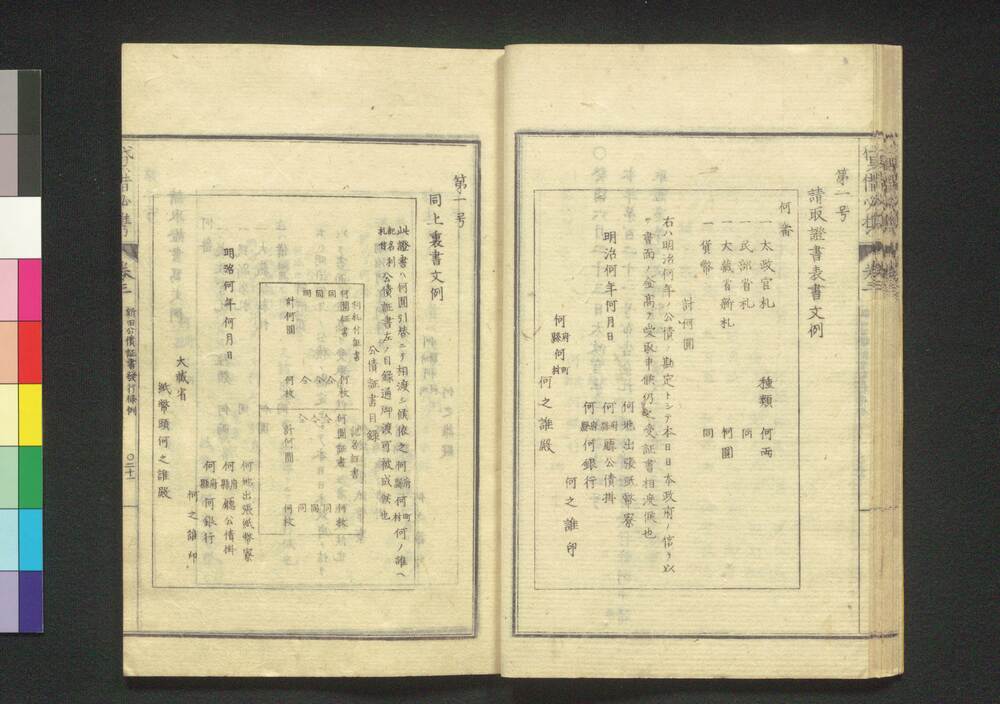 第一号
請取證書表書文例
何番
一 太政官札 種類 何両
一 民部省札 同
一 大蔵省新札 何圓
一 貨幣 同
計何圓
右ハ明治何年ノ公債ノ勘定トシテ本日日本政府ノ信ヲ以
テ書面ノ金高ヲ受取申候仍之受証書相渡候也
明治何年何月日
何地出張紙幣寮
何府縣廳公債掛
何府縣何銀行
何之誰印
何府縣何町村
何之誰殿
第一号
同上裏書文例
此證書ハ何圓引替ニテ相渡シ候依之何府縣何町村何ノ誰ヘ
記名利札付公債証書左ノ目録通御渡可被成候也
公債証書目録
何札付証書 記名証書
何圓証書 何枚 何圓証書 何枚
同 同 仝 仝 同
同 同 仝 仝 同
計何圓 何枚 計何圓 何枚
明治何年何月日
何地出張紙幣寮
何府縣廳公債掛
何府縣何銀行
何之誰印
大蔵省
紙幣頭何之誰殿
巻三
新旧公債証書發行條例
〇二十一